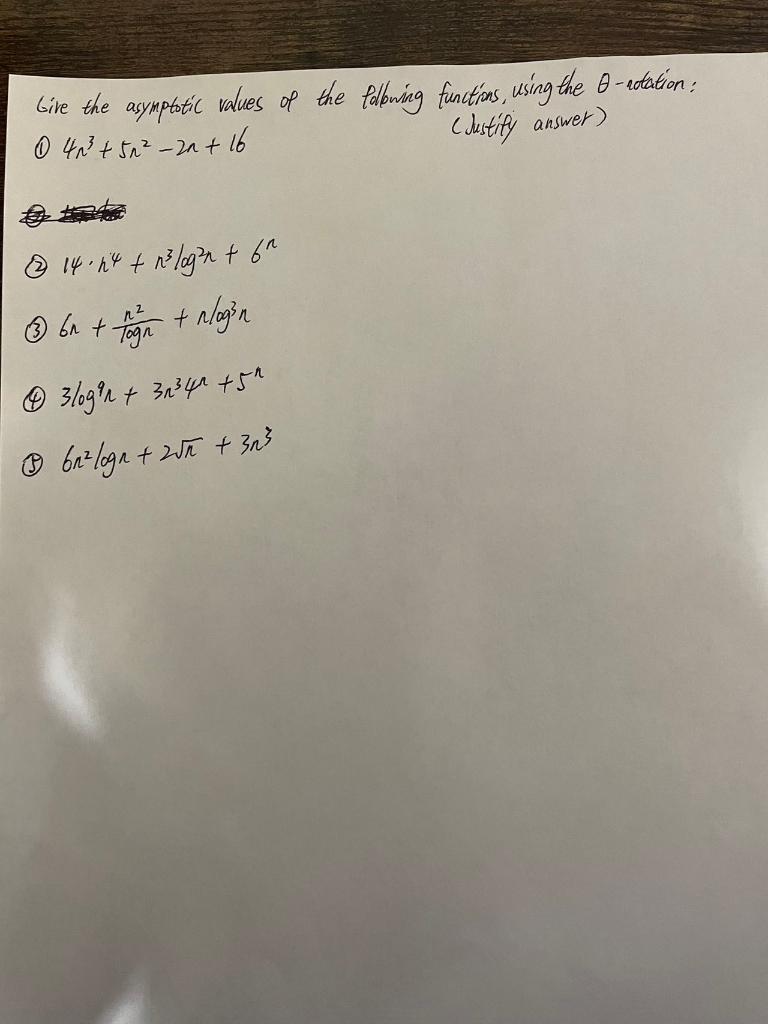 Give the asymptotic values of the following functions, using the θ-notation:
(Justify answer)
① 4n³ + 5n² − 2n + 16
② 14·n⁴ + n³log²n + 6ⁿ
③ 6n + n²/logn + nlog³n
④ 3log⁹n + 3n³4ⁿ + 5ⁿ
⑤ 6n²logn + 2√n + 3n³